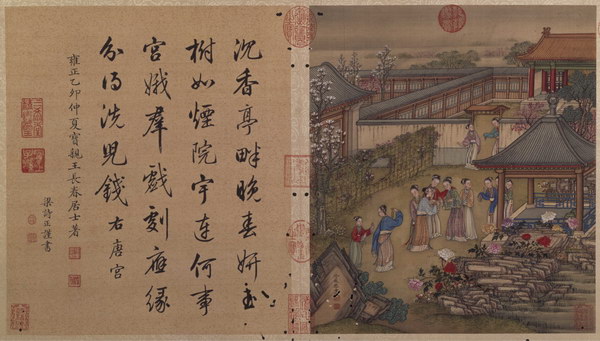 沉香亭畔晚春妍玉
樹如煙院宇連何事
宮娥羣戲劇應緣
分得洗兒錢 右唐宮
雍正乙卯仲夏寶親王長春居士著
梁詩正謹書